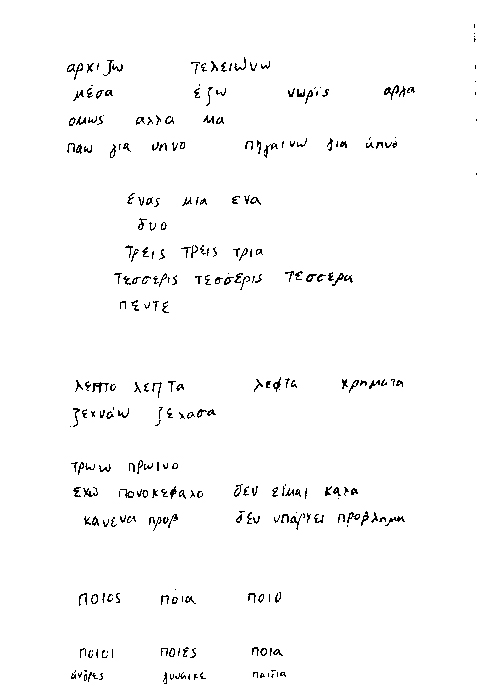 αρχιζω τελειώνω
μέσα έξω νωρίς αργα
ομως αλλα μα
παω για υπνο πηγαινω για ύπνο
ενας μια ενα
δυο
τρεις τρεις τρια
τεσσερις τεσσερις τεσσερα
πεντε
λεπτο λεπτα λεφτα χρηματα
ξεχνάω ξεχασα
τρωω πρωινο
εχω πονοκεφαλο δεν ειμαι καλα
κανενα προβ δεν υπάρχει προβλημα
ποιος ποια ποιο
ποιοι ποιες ποια
άνδρες γυναικε παιτια